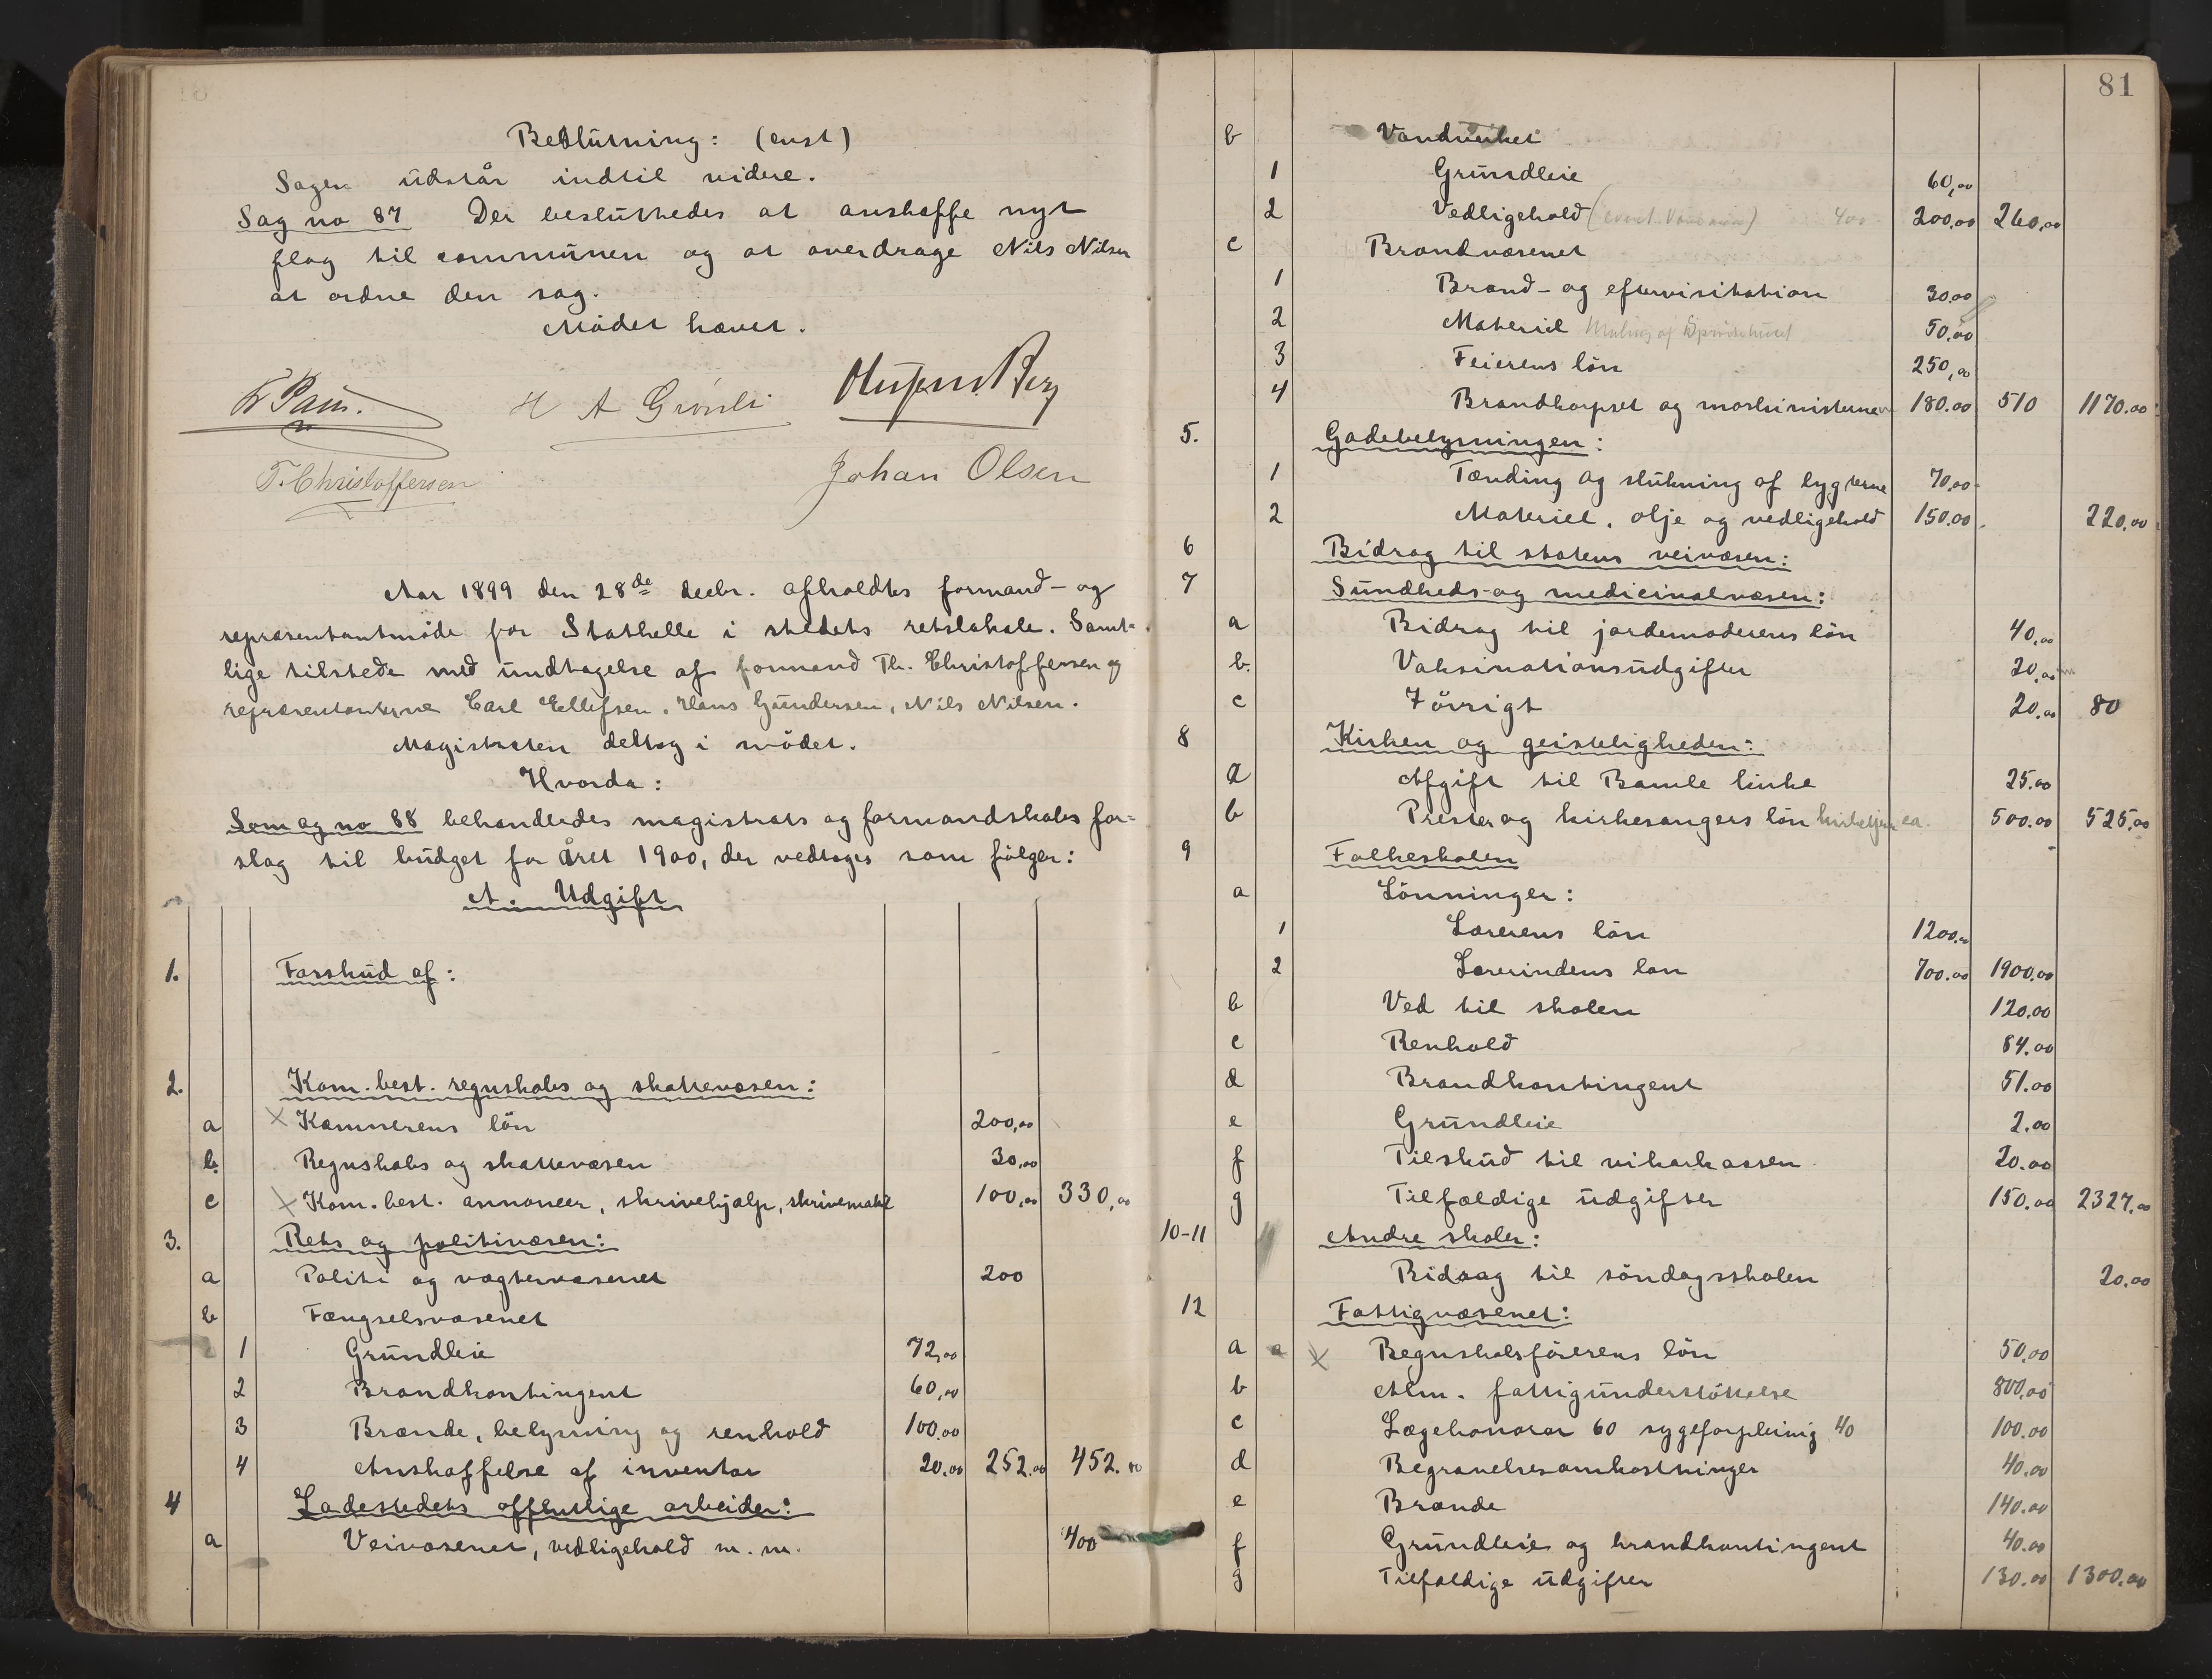 Beslutning: (enst)
Sagen udstår indtil videre.
Sag no 87 Der besluttedes at anskaffe nyt
flag til communen og at overdrage Nils Nilsen
at ordne den sag.
Mødet hævet.
H A Grønli
T. Christoffersen
Johan Olsen
Aar 1899 den 28de decbr. afholdtes formand- og
repræsentantmöde for Stathelle i stedets retslokale. Samt-
lige tilstede med undtagelse af formand Th. Christoffersen og
repræsentanterne Carl Ellefsen, Hans Gundersen, Nils Nilsen.
Magistraten deltog i mödet.
Hvorda:
Som sag no 88 behandledes magistrats og formandskabs for-
slag til budget for året 1900, der vedtoges som fölger:
A. Udgift
1. Forskud af:
2. Kom. best. regnskabs og skattevæsen:
a × Kæmnerens lön 200,00
b. Regnskabs og skattevæsen 30,00
c × Kom. best. annoncer, skrivehjælp, skrivemat 100,00 330,00
3. Rets og politivæsen:
a Politi og vægtervæsenet 200
b Fængselsvæsenet
1 Grundleie 72,00
2 Brandkontingent 60,00
3 Brænde, belysning og renhold 100.00
4 Anskaffelse af inventar 20.00 252.00 452.00
4 Ladestedets offentlige arbeider:
a Veivæsenet, vedligehold m. m. 400
81
b Vandverket
1 Grundleie 60,00
2 Vedligehold 400 200,00 260,00
c Brandvæsenet
1 Brand- og eftervisitation 30,00
2 Materiel Maling af Spröitehuset 50,00
3 Feierens lön 250,00
4 Brandkorpset og maskinisterne 180.00 510 1170.00
5. Gadebelysningen:
1 Tænding og slukning af lygterne 70,00
2 Materiel, olje og vedligehold 150.00 220,00
6 Bidrag til statens veivæsen:
7 Sundheds- og medicinalvæsen:
a Bidrag til jordemoderens lön 40,00
b. Vaksinationsudgifter 20,00
c Iövrigt 20,00 80
8 Kirken og geisteligheden:
a Afgift til Bamle kirke 25.00
b Prester og kirkesangers lön 500.00 525,00
9 Folkeskolen
a Lönninger:
1 Lærerens lön 1200,00
2 Lærerindens løn 700.00 1900,00
b Ved til skolen 120.00
c Renhold 84.00
d Brandkontingent 51.00
e Grundleie 2.00
f Tilskud til vikarkassen 20.00
g Tilfældige udgifter 150.00 2327,00
10-11 Andre skoler:
Bidrag til söndagsskolen 20.00
12 Fattigvæsenet:
a × Regnskabsförerens lön 50,00
b Alm. fattigunderstöttelse 800,00
c Lægehonorar 60 sygeforpleining 40 100.00
d Begravelsesomkostninger 40.00
e Brænde 140.00
f Grundleie og brandkontingent 40.00
g Tilfældige udgifter 130.00 1300.00